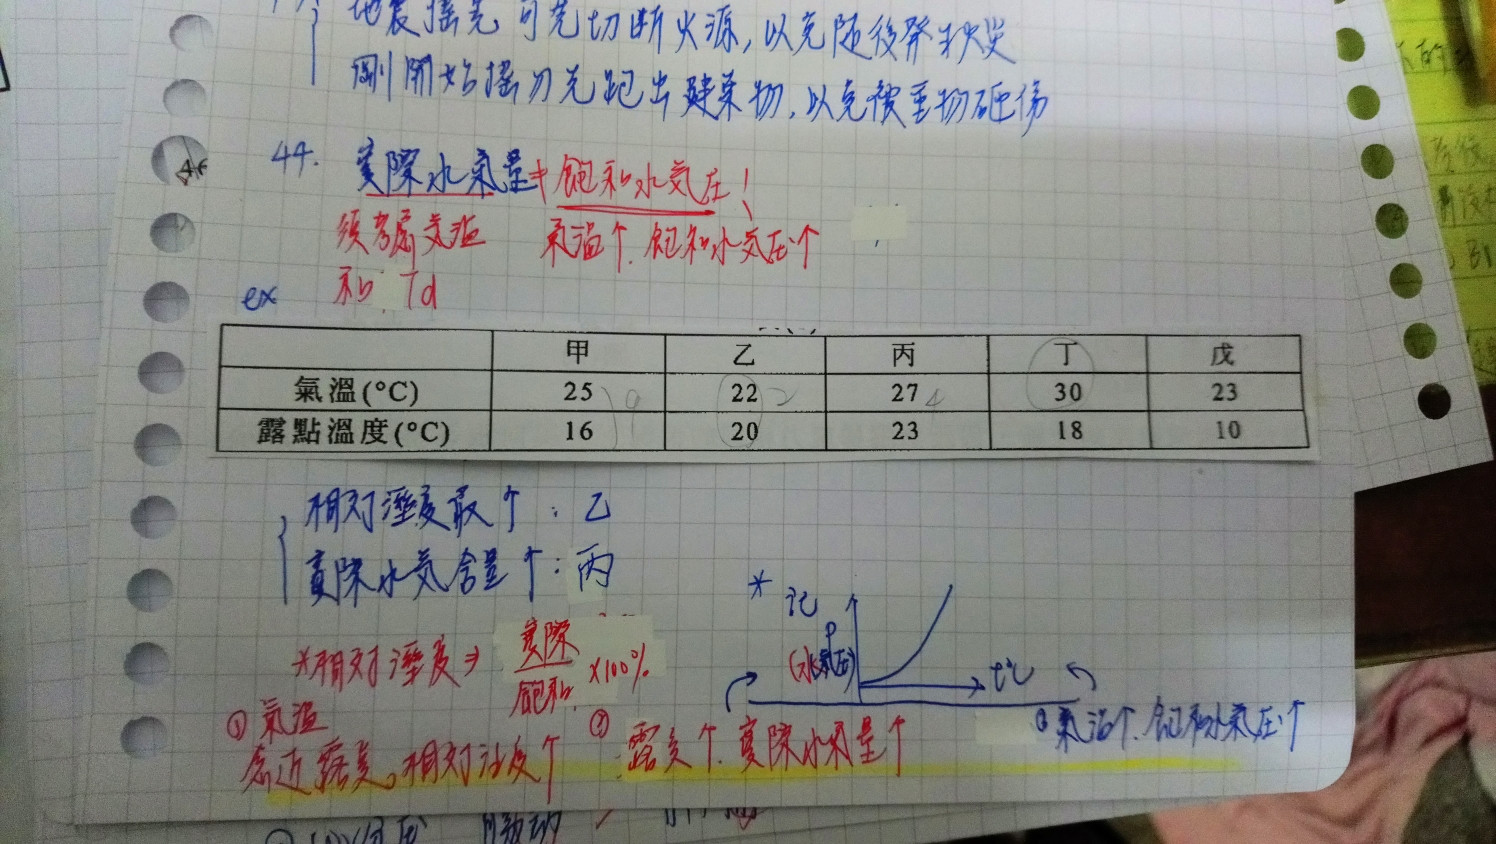 地震搖完可先切斷火源,以免隨後發生火災
剛開始搖勿先跑出建築物,以免被重物砸傷
44. 實際水氣量≠飽和水気圧!
須考慮気溫 氣溫↑.飽和水気圧↑
和 Td
ex
甲 乙 丙 丁 戊
氣溫(°C) 25 9 22 2 27 4 30 23
露點溫度(°C) 16 20 23 18 10
相対溼度最↑:乙
實際水気含量↑:丙
* 記 P (水氣圧) t℃
*相対溼度⇒ 實際/飽和 ×100%
① 氣溫
愈近露點,相対溼度↑
② 露點↑.實際水氣量↑
氣溫↑.飽和水氣圧↑